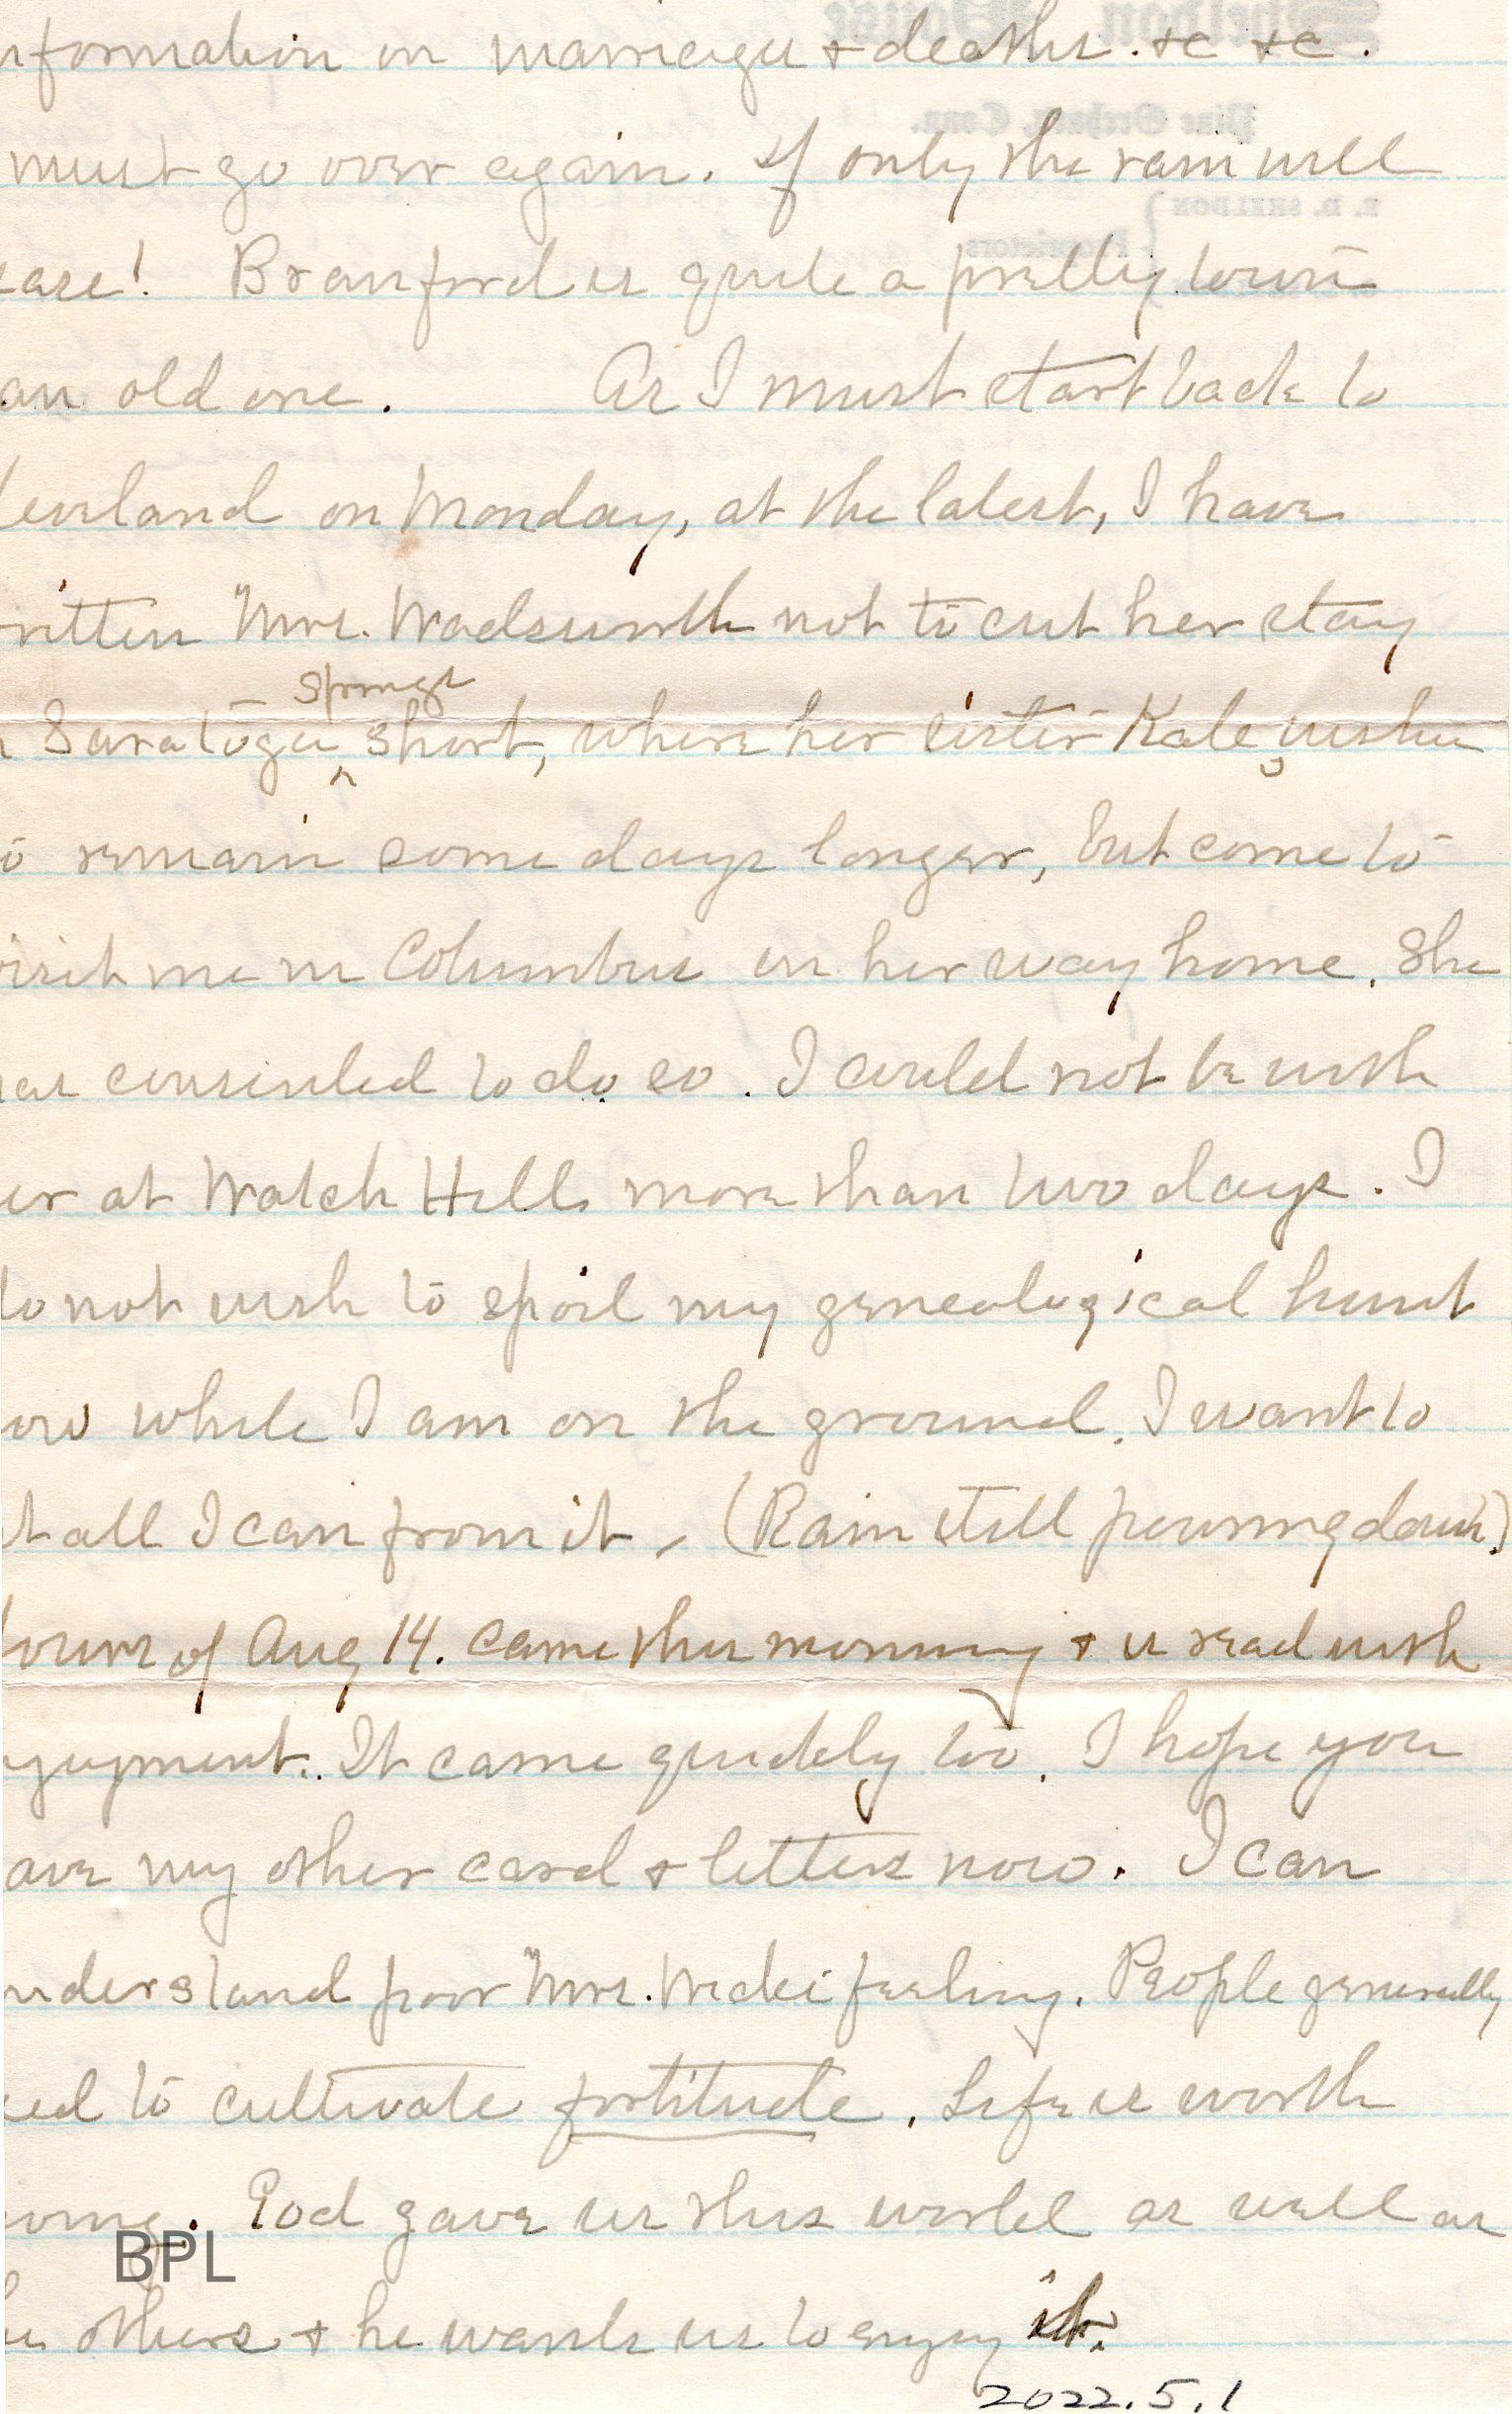 nformation on marriages & deaths. &c &c.
must go over again. If only the rain will
ease! Branford is quite a pretty town
an old one. As I must start back to
leveland on Monday, at the latest, I have
ritten Mrs. Wadsworth not to cut her stay
Springs
Saratoga ^ short, where her sister Kate wishes
o remain some days longer, but come to
visit me in Columbus on her way home. She
has consented to do so. I could not be with
er at Watch Hill more than two days. I
do not wish to spoil my genealogical hunt
ow while I am on the ground. I want to
t all I can from it. (Rain still pouring down.)
Yours of Aug 14. came this morning & is read with
njoyment. It came quickly too. I hope you
ave my other card & letters now. I can
nderstand poor Mrs. feeling. People generally
eed to cultivate fortitude. Life is worth
iving. God gave us this world as well as
he others & he wants us to enjoy it.
BPL
2022.5.1
Sheldon House
Pine Orchard, Conn.
E. D. SHELDON
Proprietors